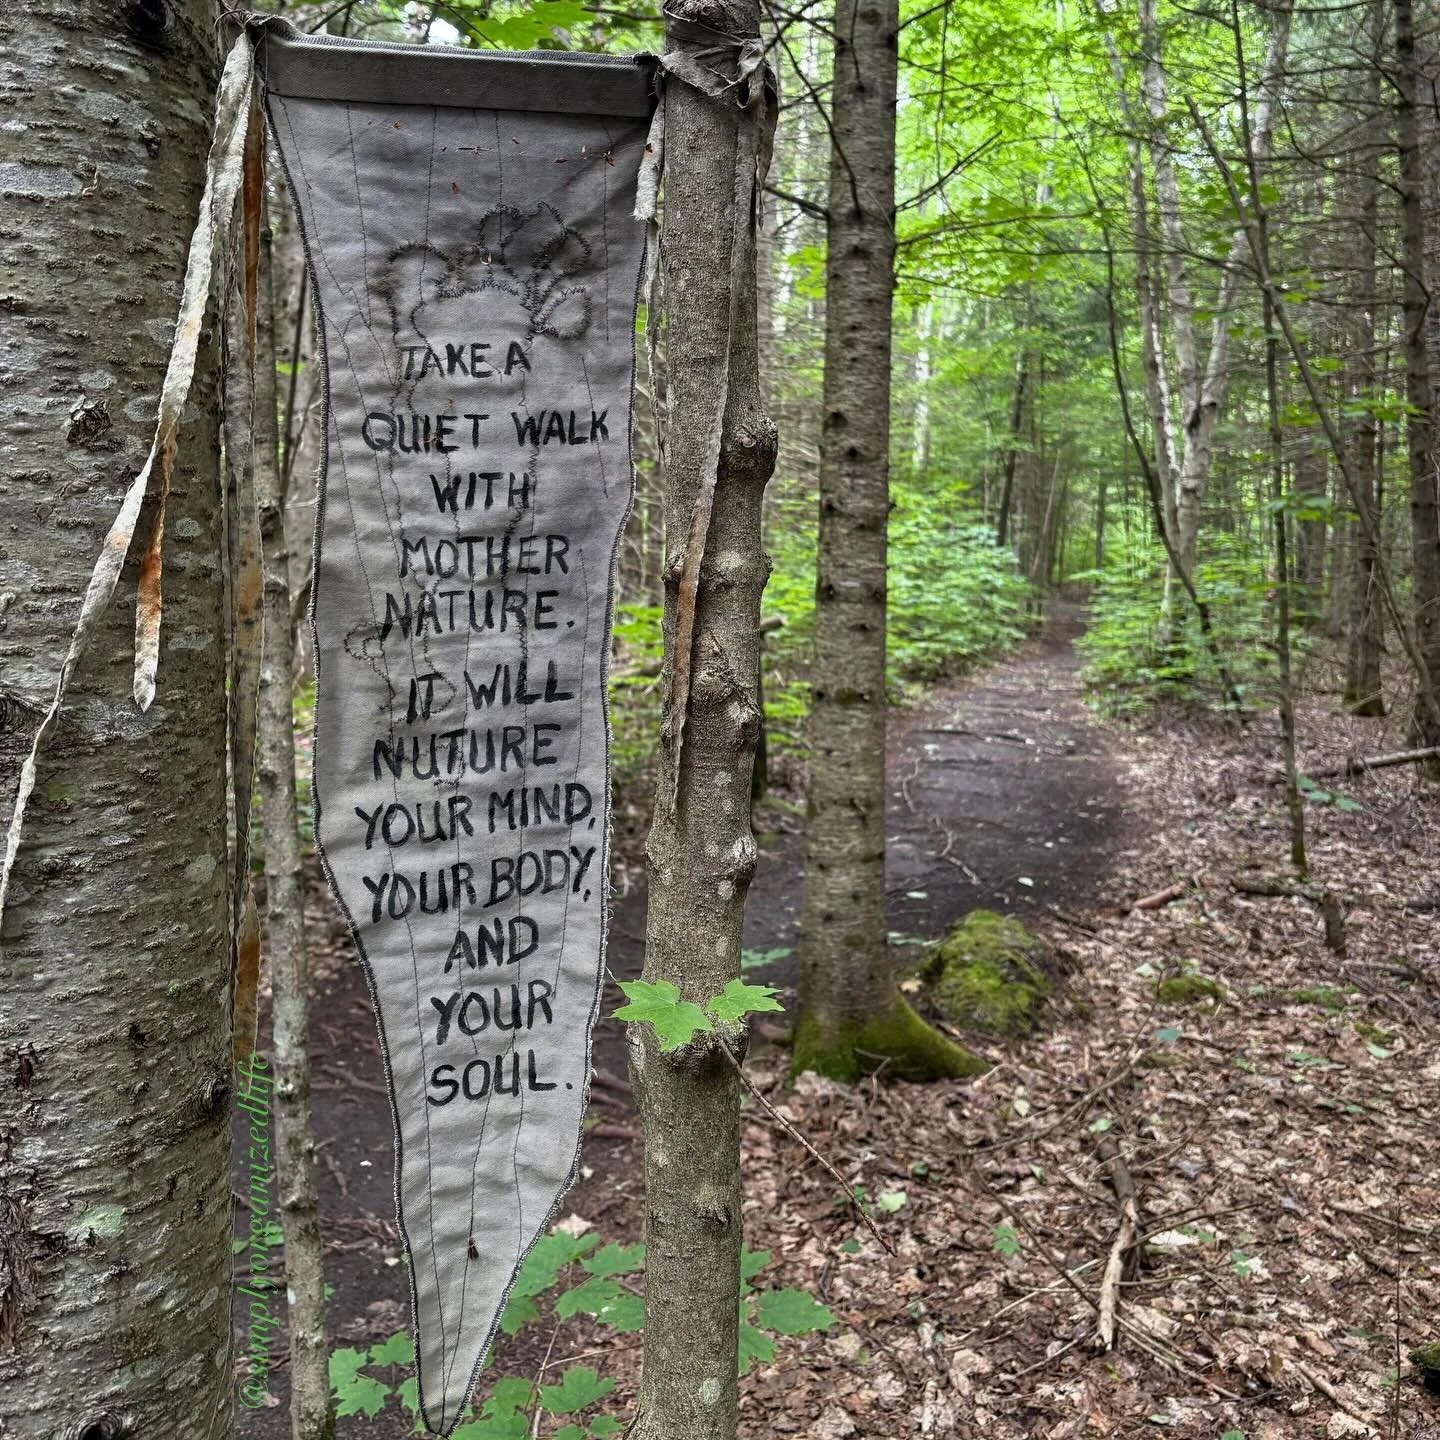 TAKE A
QUIET WALK
WITH
MOTHER
NATURE.
IT WILL
NUTURE
YOUR MIND,
YOUR BODY,
AND
YOUR
SOUL.
@simplyorganizedlife